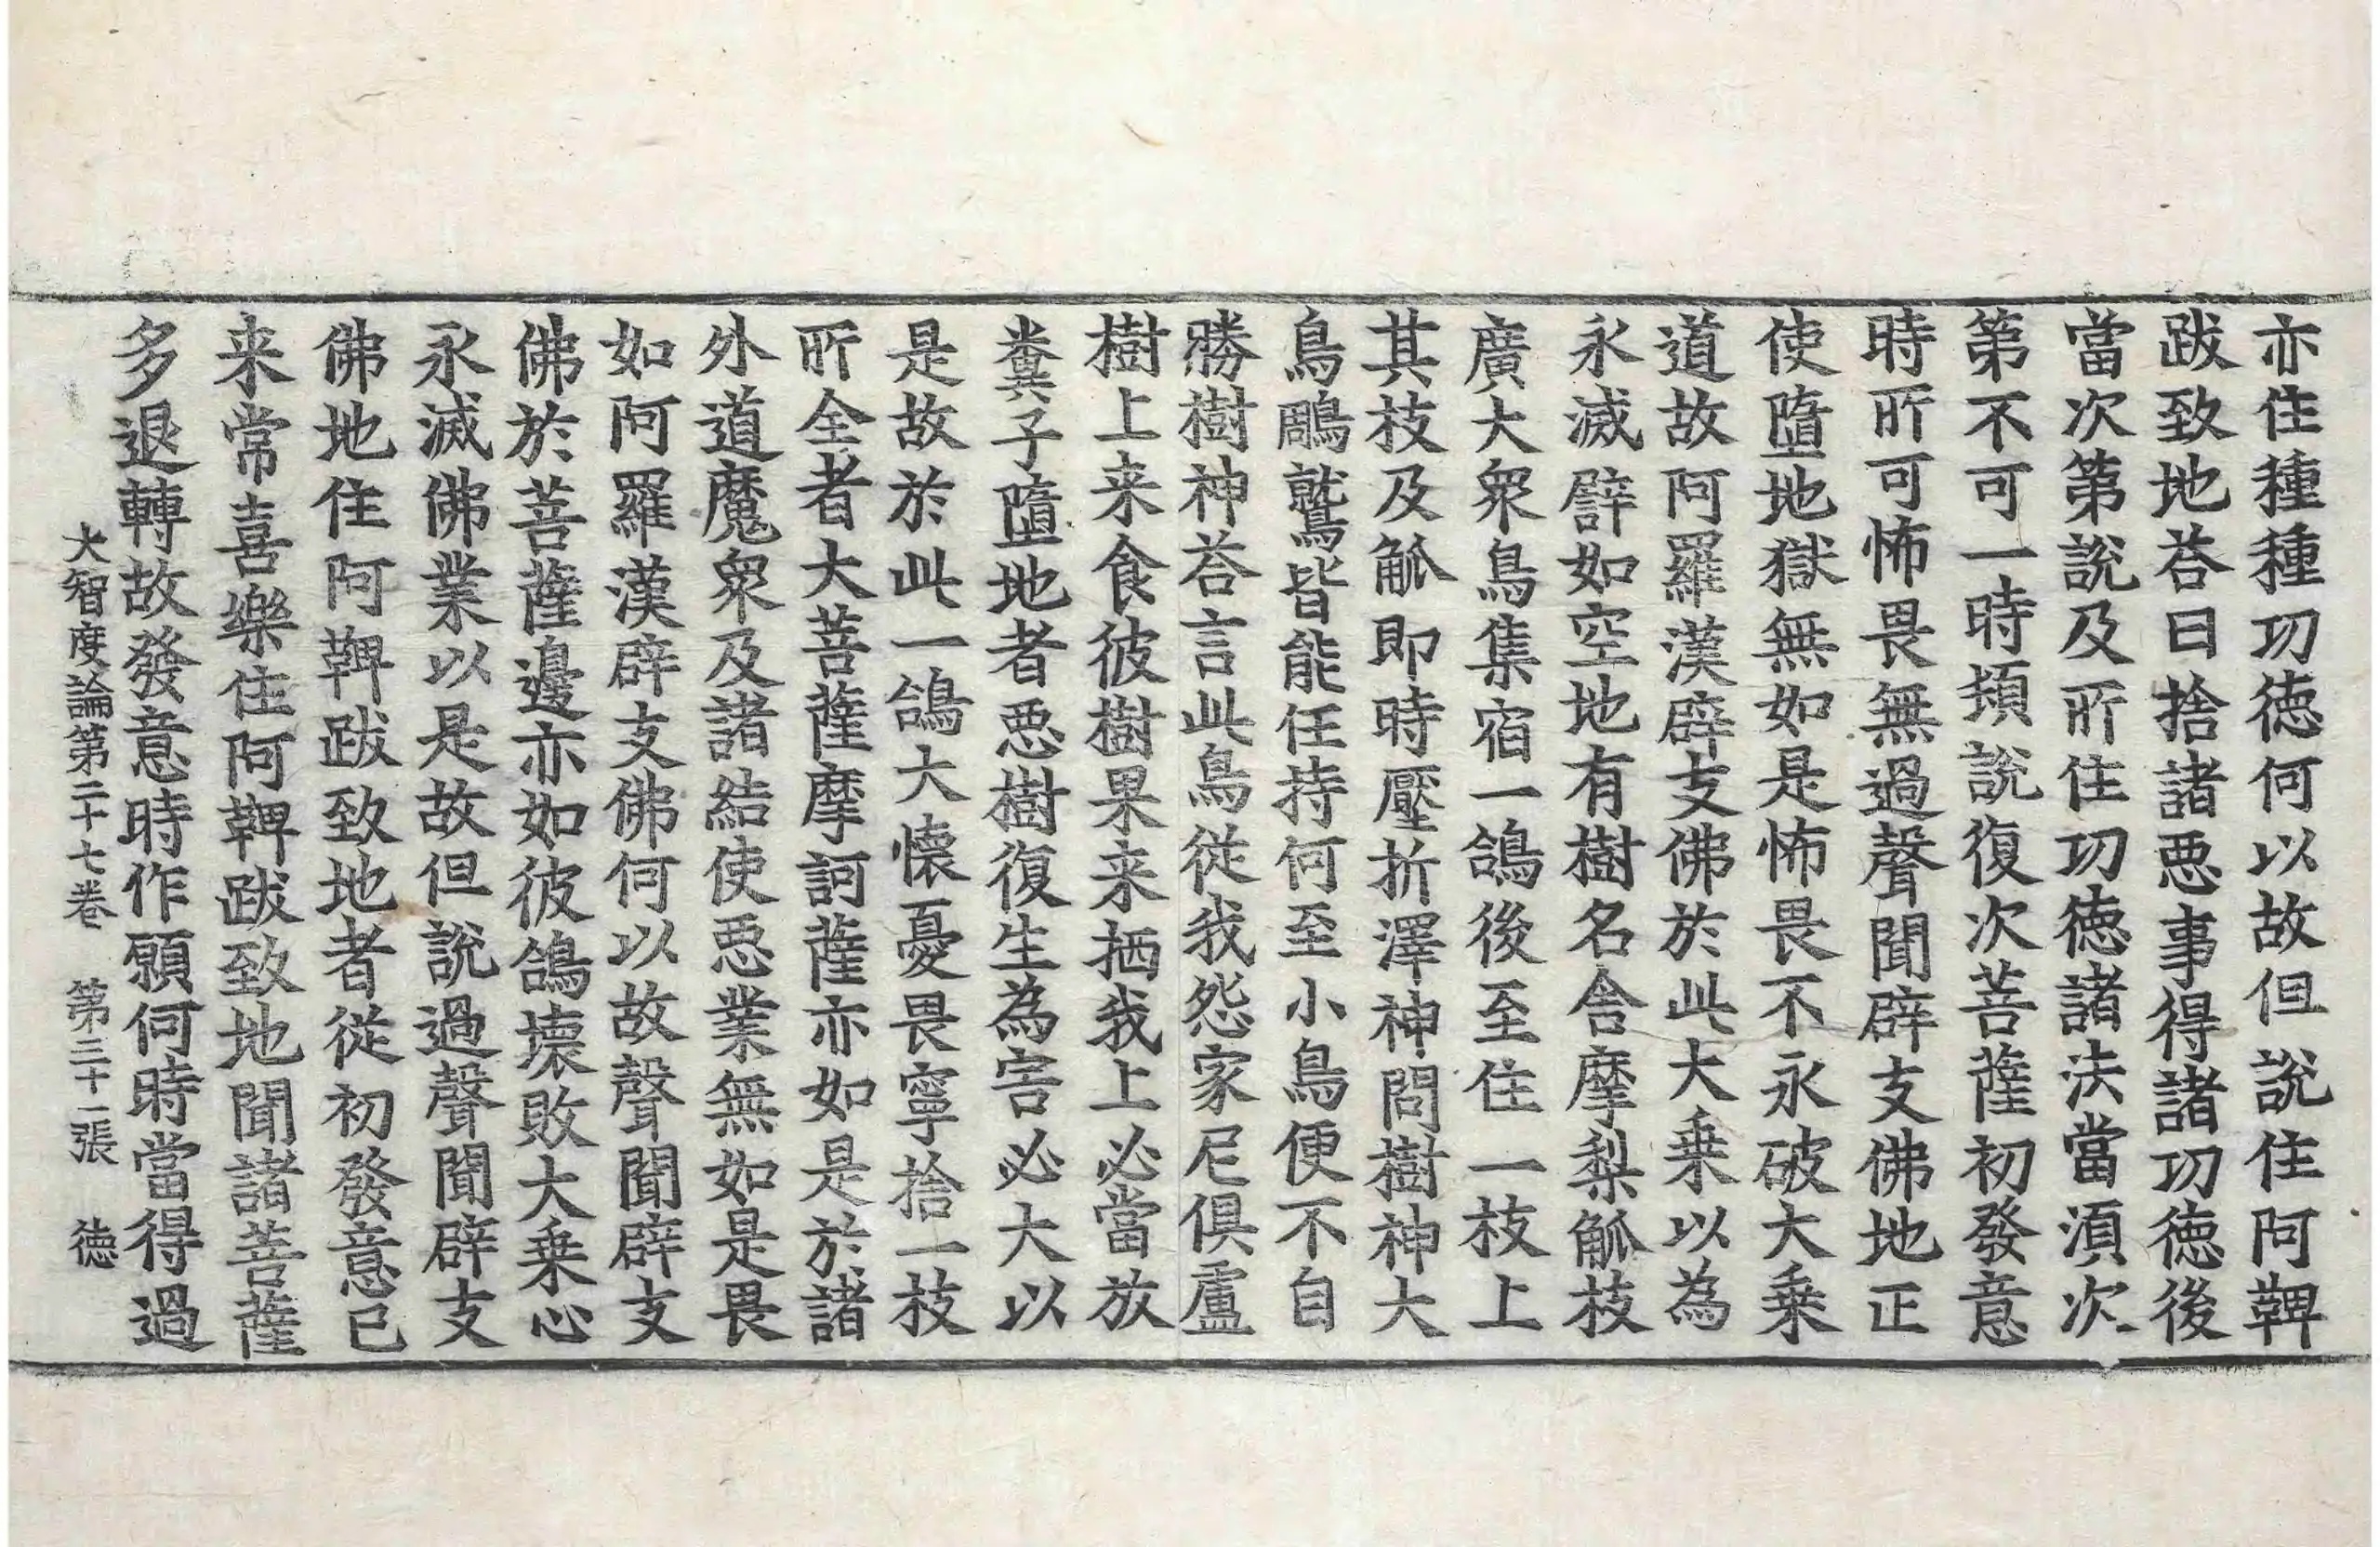 亦住種種功德何以故但說住阿鞞
跋致地荅曰捨諸惡事得諸功德後
當次第說及所住功德諸法當湏次
第不可一時頓說復次菩薩初發意
時所可怖畏無過聲聞辟支佛地正
使墮地獄無如是怖畏不永破大乗
道故阿羅漢辟支佛於此大乗以為
永滅譬如空地有樹名舍摩梨觚枝
廣大衆鳥集宿一鴿後至住一枝上
其枝及觚即時壓折澤神問樹神大
鳥鵰鷲皆能任持何至小鳥便不自
勝樹神荅言此鳥從我怨家尼俱盧
樹上来食彼樹果来栖我上必當放
糞子墮地者惡樹復生為害必大以
是故於此一鴿大懷憂畏寧捨一枝
所全者大菩薩摩訶薩亦如是於諸
外道魔衆及諸結使惡業無如是畏
如阿羅漢辟支佛何以故聲聞辟支
佛於菩薩邊亦如彼鴿壞敗大乗心
永滅佛業以是故但說過聲聞辟支
佛地住阿鞞跋致地者從初發意已
来常喜樂住阿鞞跋致地聞諸菩薩
多退轉故發意時作願何時當得過
大智度論第二十七卷 第三十一張 德